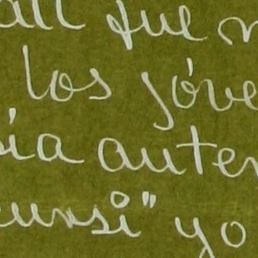 all que
los jóve
ia auten
cursi" yo